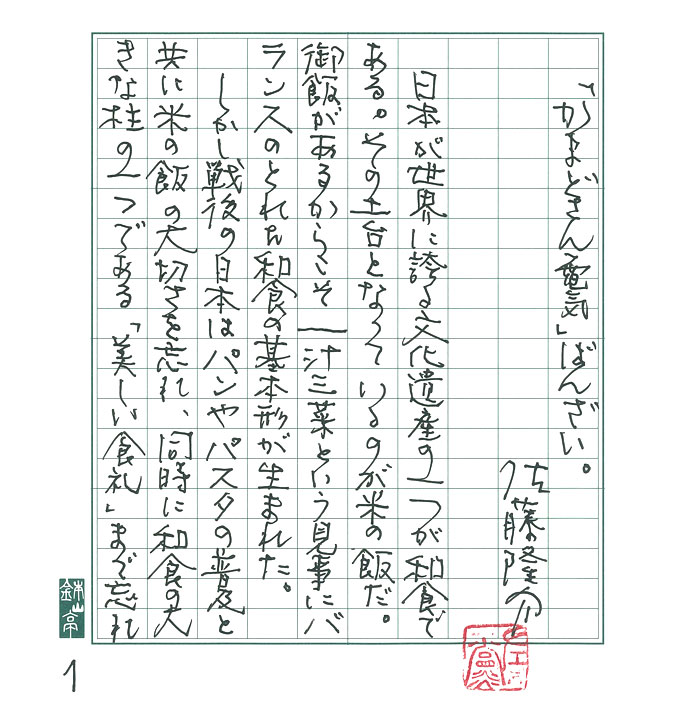 「かまどさん電気」ばんざい。
佐藤隆介
日本が世界に誇る文化遺産の一つが和食で
ある。その土台となっているのが米の飯だ。
御飯があるからこそ一汁三菜という見事にバ
ランスのとれた和食の基本形が生まれた。
しかし戦後の日本はパンやパスタの普及と
共に米の飯の大切さを忘れ、同時に和食の大
きな柱の一つである「美しい食礼」まで忘れ
鉢山亭
1